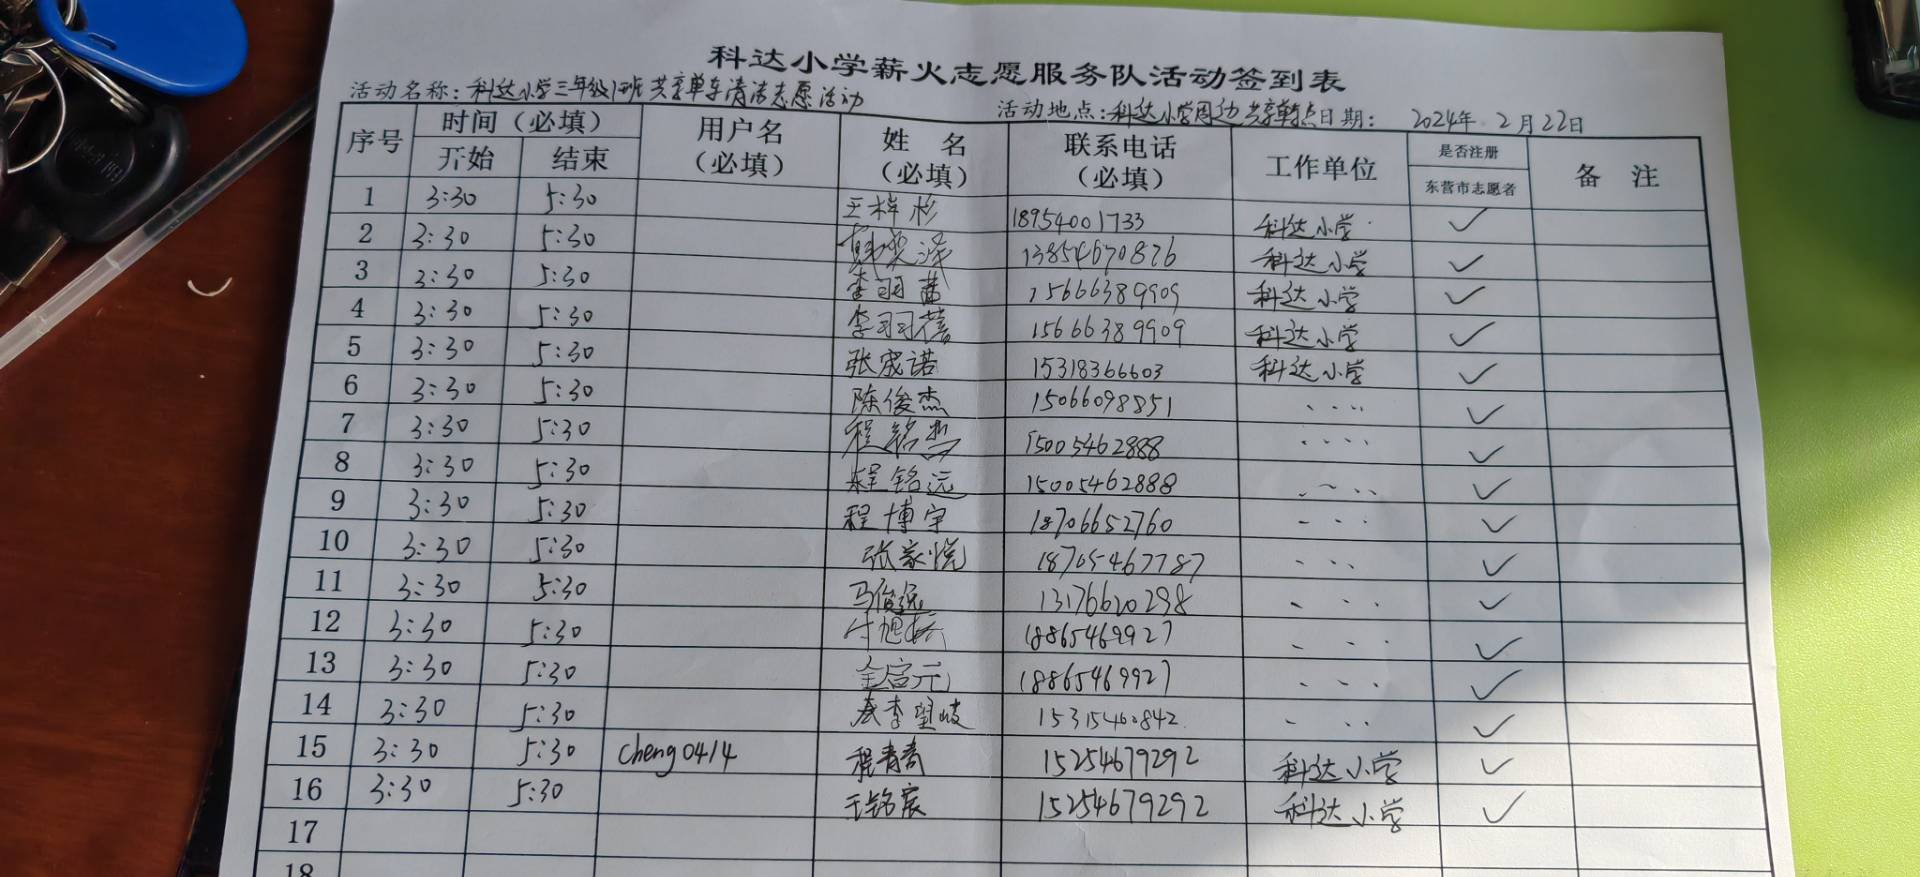 科达小学薪火志愿服务队活动签到表
活动名称：科达小学三年级1班共享单车清洁志愿活动 活动地点：科达小学周边共享单车点 日期： 2024年 2月22日
序号 时间（必填） 用户名（必填） 姓 名（必填） 联系电话（必填） 工作单位 是否注册 备 注
开始 结束 东营市志愿者
1 3:30 5:30 王梓杉 18954001733 科达小学 ✓
2 3:30 5:30 奕泽 13854670876 科达小学 ✓
3 3:30 5:30 李羽 15666389909 科达小学 ✓
4 3:30 5:30 李羽 15666389909 科达小学 ✓
5 3:30 5:30 张宬诺 15318366603 科达小学 ✓
6 3:30 5:30 陈俊杰 15066098851 ✓
7 3:30 5:30 程铭 15005462888 ✓
8 3:30 5:30 程铭远 15005462888 ✓
9 3:30 5:30 程博宇 18706652760 ✓
10 3:30 5:30 张家悦 18705467787 ✓
11 3:30 5:30 马俊逸 13176620298 ✓
12 3:30 5:30 18865469927 ✓
13 3:30 5:30 18865469927 ✓
14 3:30 5:30 15315460842 ✓
15 3:30 5:30 cheng0414 程青青 15254679292 科达小学 ✓
16 3:30 5:30 王铭宸 15254679292 科达小学 ✓
17
18